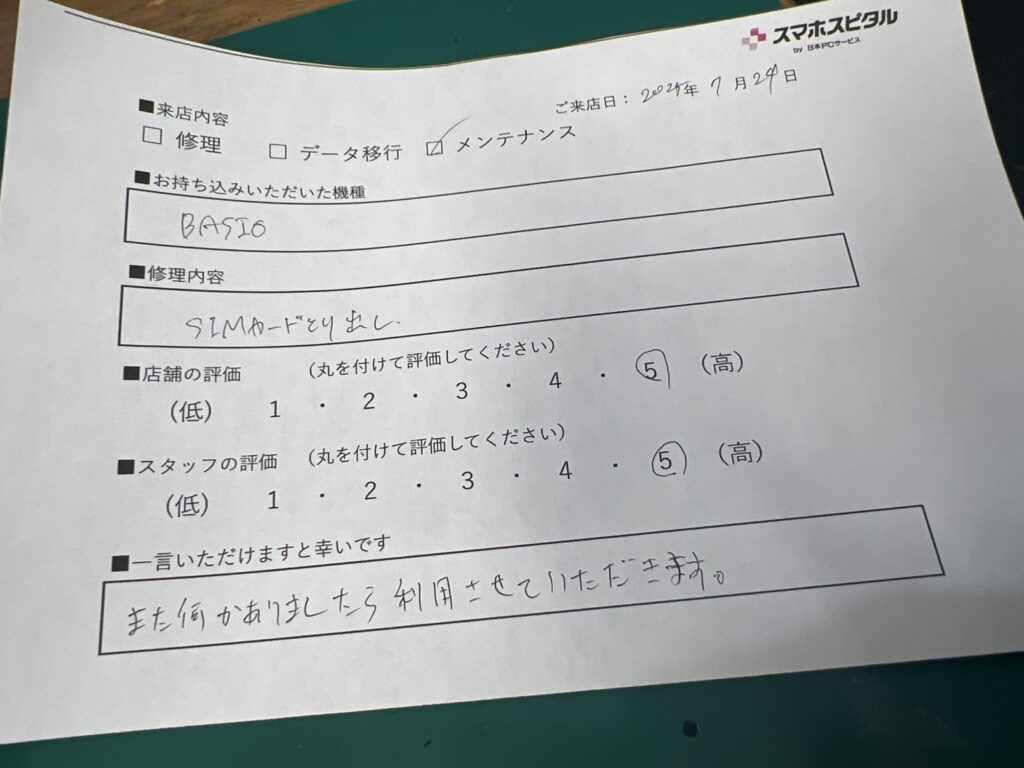 スマホスピタル
by 日本PCサービス
ご来店日：2025年 7月24日
■来店内容
□ 修理 □ データ移行 ☑ メンテナンス
■お持ち込みいただいた機種
BASIO
■修理内容
SIMカードとり出し.
■店舗の評価 （丸を付けて評価してください）
（低） 1 ・ 2 ・ 3 ・ 4 ・ ⑤ （高）
■スタッフの評価 （丸を付けて評価してください）
（低） 1 ・ 2 ・ 3 ・ 4 ・ ⑤ （高）
■一言いただけますと幸いです
また何かありましたら利用させていただきます。